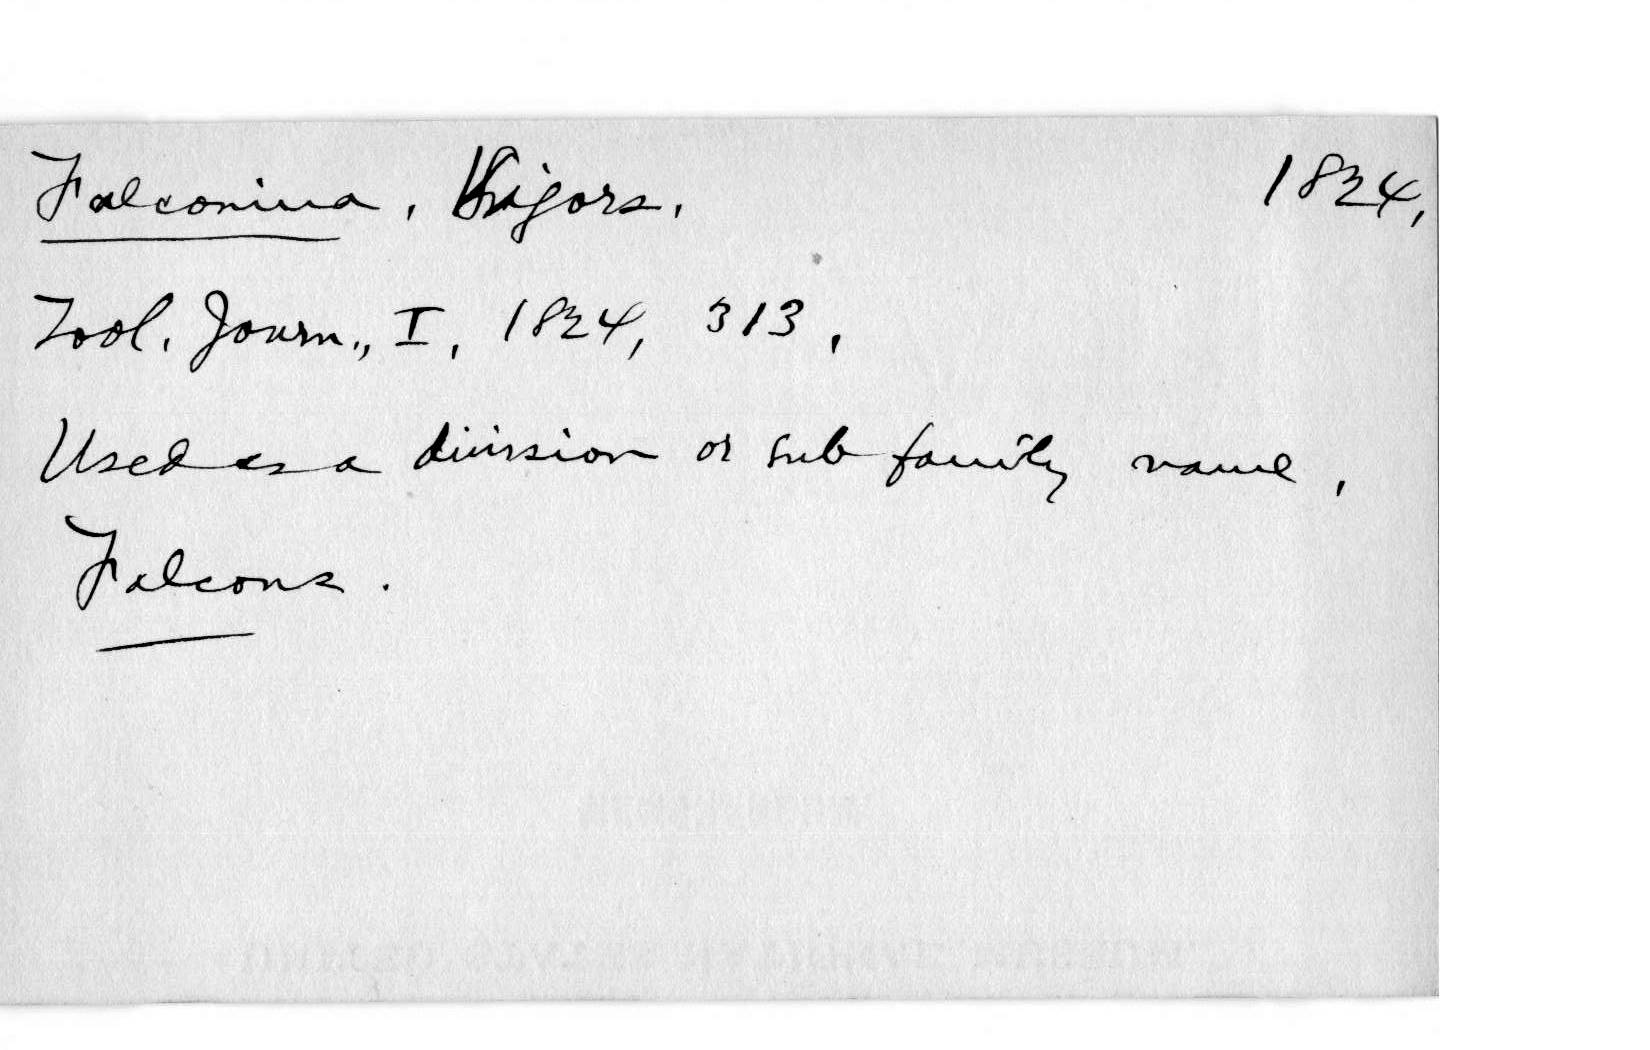 Falconina, Vigors. 1824,
Zool. Journ., I, 1824, 313,
Used as a division or sub family name,
Falcons.